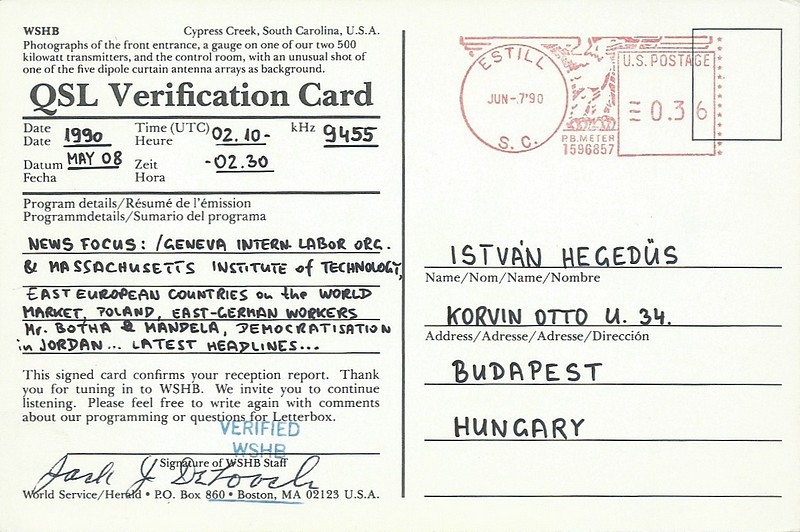 WSHB Cypress Creek, South Carolina, U.S.A.
Photographs of the front entrance, a gauge on one of our two 500
kilowatt transmitters, and the control room, with an unusual shot of
one of the five dipole curtain antenna arrays as background.
QSL Verification Card
Date Date 1990 Time (UTC) Heure 02.10- kHz 9455
Datum Fecha MAY 08 Zeit Hora -02.30
Program details/Résumé de l'émission
Programmdetails/Sumario del programa
NEWS FOCUS: /GENEVA INTERN. LABOR ORG.
& MASSACHUSETTS INSTITUTE of TECHNOLOGY,
EAST EUROPEAN COUNTRIES on the WORLD
MARKET, POLAND, EAST-GERMAN WORKERS
Mr. BOTHA & MANDELA, DEMOCRATISATION
in JORDAN... LATEST HEADLINES...
This signed card confirms your reception report. Thank
you for tuning in to WSHB. We invite you to continue
listening. Please feel free to write again with comments
about our programming or questions for Letterbox.
VERIFIED
WSHB
Signature of WSHB Staff
World Service/Herald • P.O. Box 860 • Boston, MA 02123 U.S.A.
ESTILL
JUN-.7'90
S. C.
U.S. POSTAGE
0.3 6
P.B. METER
1596857
ISTVÁN HEGEDŰS
Name/Nom/Name/Nombre
KORVIN OTTO U. 34.
Address/Adresse/Adresse/Dirección
BUDAPEST
HUNGARY